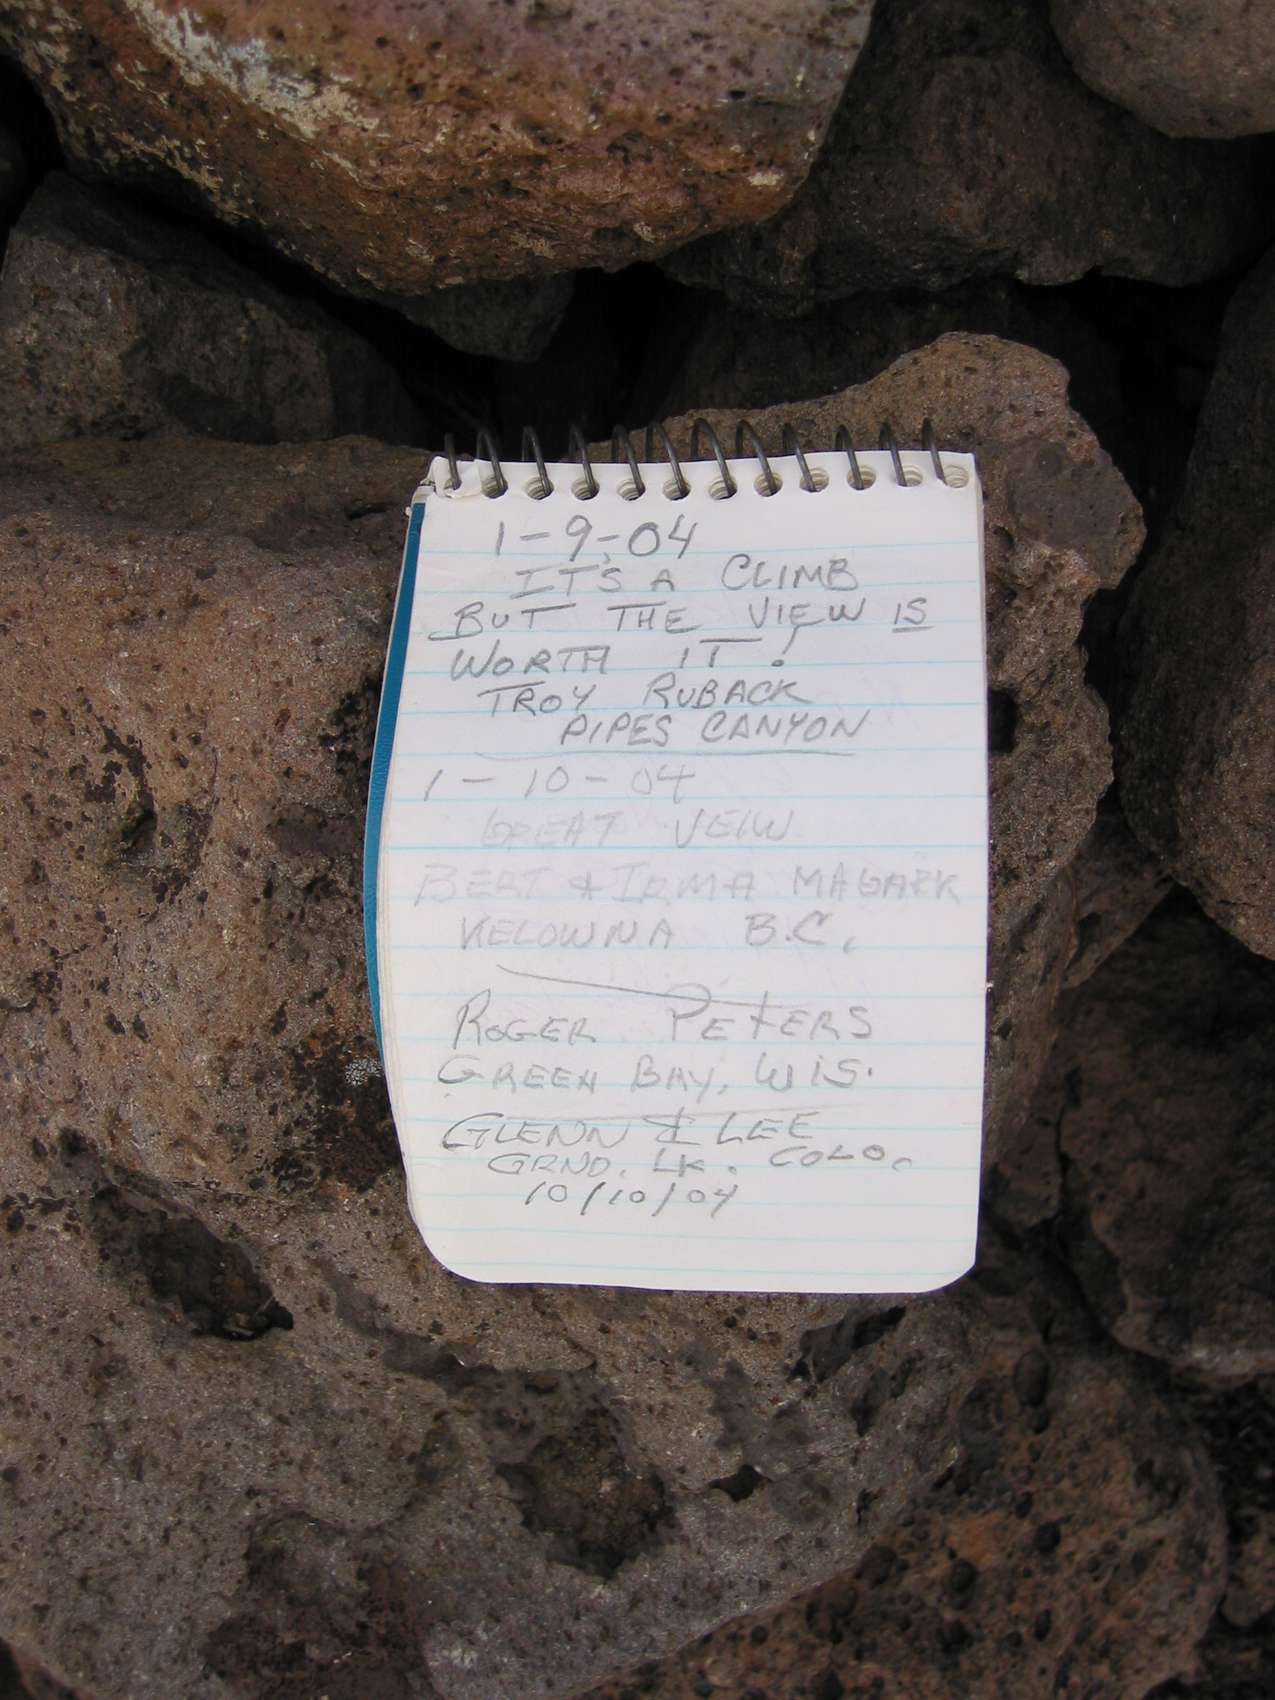 1-9-04
IT'S A CLIMB
BUT THE VIEW IS
WORTH IT!
TROY RUBACK
PIPES CANYON
1-10-04
GREAT VEIW
BERT & IRMA
KELOWNA B.C.
ROGER PETERS
GREEN BAY, WIS.
GLENN & LEE
GRND. LK. COLO.
10/10/04